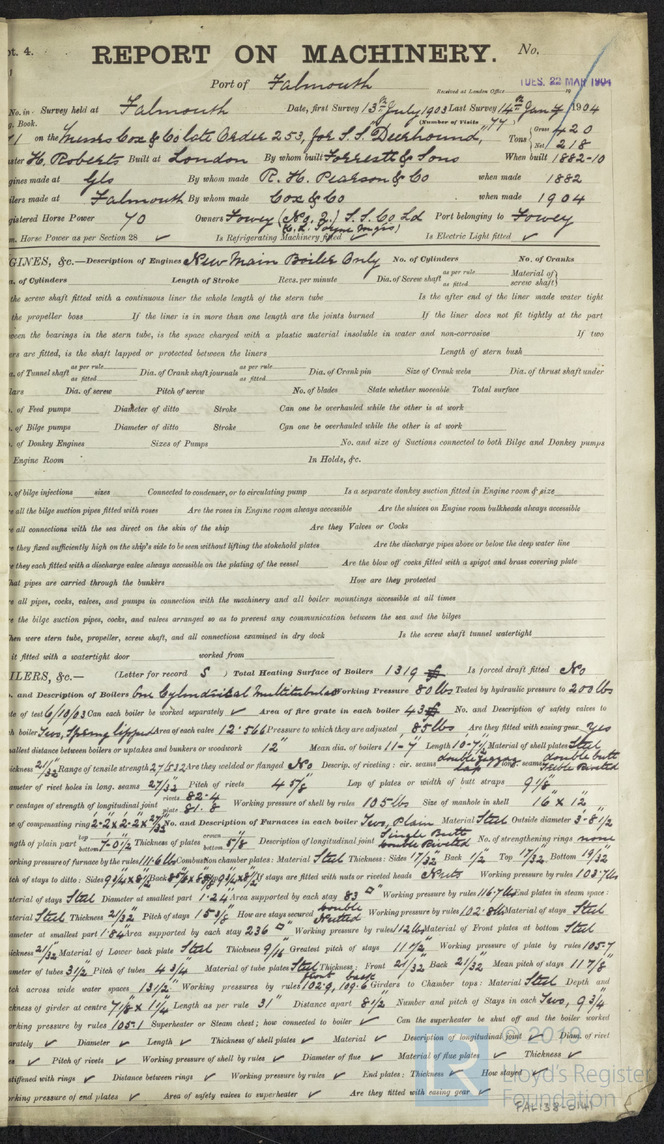 pt. 4. REPORT ON MACHINERY. No.
Port of Falmouth Received at London Office TUES. 22 MAR 1904
No. in Survey held at Falmouth Date, first Survey 13th July 1903 Last Survey 14th Jany 1904
Book. (Number of Visits 44
on the Messrs Cox & Co late Order 253, for S.S. "Deerhound," Tons { Gross 420 Net 218
ster H. Roberts Built at London By whom built Forrestt & Sons When built 1882-10
gines made at Gls By whom made R. H. Pearson & Co when made 1882
ilers made at Falmouth By whom made Cox & Co when made 1904
gistered Horse Power 70 Owners Fowey S.S. Co Ld Port belonging to Fowey
m. Horse Power as per Section 28 ✓ Is Refrigerating Machinery fitted ✓ Is Electric Light fitted ✓
GINES, &c.—Description of Engines New Main Boiler Only No. of Cylinders No. of Cranks
a. of Cylinders Length of Stroke Revs. per minute Dia. of Screw shaft as per rule as fitted Material of screw shaft }
the screw shaft fitted with a continuous liner the whole length of the stern tube Is the after end of the liner made water tight
the propeller boss If the liner is in more than one length are the joints burned If the liner does not fit tightly at the part
ween the bearings in the stern tube, is the space charged with a plastic material insoluble in water and non-corrosive If two
ers are fitted, is the shaft lapped or protected between the liners Length of stern bush
a. of Tunnel shaft as per rule as fitted Dia. of Crank shaft journals as per rule as fitted Dia. of Crank pin Size of Crank webs Dia. of thrust shaft under
lars Dia. of screw Pitch of screw No. of blades State whether moveable Total surface
. of Feed pumps Diameter of ditto Stroke Can one be overhauled while the other is at work
. of Bilge pumps Diameter of ditto Stroke Can one be overhauled while the other is at work
. of Donkey Engines Sizes of Pumps No. and size of Suctions connected to both Bilge and Donkey pumps
Engine Room In Holds, &c.
. of bilge injections sizes Connected to condenser, or to circulating pump Is a separate donkey suction fitted in Engine room & size
e all the bilge suction pipes fitted with roses Are the roses in Engine room always accessible Are the sluices on Engine room bulkheads always accessible
e all connections with the sea direct on the skin of the ship Are they Valves or Cocks
e they fixed sufficiently high on the ship's side to be seen without lifting the stokehold plates Are the discharge pipes above or below the deep water line
e they each fitted with a discharge valve always accessible on the plating of the vessel Are the blow off cocks fitted with a spigot and brass covering plate
hat pipes are carried through the bunkers How are they protected
e all pipes, cocks, valves, and pumps in connection with the machinery and all boiler mountings accessible at all times
e the bilge suction pipes, cocks, and valves arranged so as to prevent any communication between the sea and the bilges
hen were stern tube, propeller, screw shaft, and all connections examined in dry dock Is the screw shaft tunnel watertight
it fitted with a watertight door worked from
ILERS, &c.— (Letter for record S ) Total Heating Surface of Boilers 1319 Is forced draft fitted No
. and Description of Boilers One Cylindrical Multitubular Working Pressure 80 lbs Tested by hydraulic pressure to 200 lbs
te of test 6/10/03 Can each boiler be worked separately ✓ Area of fire grate in each boiler 43 No. and Description of safety valves to
h boiler Two, Spring lipped Area of each valve 12.566 Pressure to which they are adjusted 85 lbs Are they fitted with easing gear Yes
allest distance between boilers or uptakes and bunkers or woodwork 12" Mean dia. of boilers 11-7 Length 10-7½ Material of shell plates Steel
ickness 21/32 Range of tensile strength 27 to 32 Are they welded or flanged No Descrip. of riveting: cir. seams double zigzag lap long. seams double butt treble riveted
ameter of rivet holes in long. seams 27/32 Pitch of rivets 4 5/8 Lap of plates or width of butt straps 9 1/8
r centages of strength of longitudinal joint rivets 82.4 plate 81.8 Working pressure of shell by rules 105 lbs Size of manhole in shell 16" x 12"
e of compensating ring 2'-2" x 2'-2" x 27/32 No. and Description of Furnaces in each boiler Two, Plain Material Steel Outside diameter 3'-8½
ngth of plain part top bottom 7-0½ Thickness of plates crown bottom 5/8 Description of longitudinal joint Single Butt double Riveted No. of strengthening rings none
orking pressure of furnace by the rules 111.6 lbs Combustion chamber plates: Material Steel Thickness: Sides 17/32 Back 1/2 Top 17/32 Bottom 19/32
tch of stays to ditto: Sides 9¼ x 8½ Back Top 9¾ x 8½ If stays are fitted with nuts or riveted heads Nuts Working pressure by rules 103.7 lbs
aterial of stays Steel Diameter at smallest part 1.24 Area supported by each stay 83 □" Working pressure by rules 116.7 lbs End plates in steam space:
aterial Steel Thickness 21/32 Pitch of stays 15 3/8 How are stays secured double Nutted Working pressure by rules 102.8 lbs Material of stays Steel
iameter at smallest part 1.84 Area supported by each stay 236 □" Working pressure by rules 112 lbs Material of Front plates at bottom Steel
ickness 21/32 Material of Lower back plate Steel Thickness 9/16 Greatest pitch of stays 11½ Working pressure of plate by rules 105.7
ameter of tubes 3½ Pitch of tubes 4¾ Material of tube plates Steel Thickness: Front 21/32 Back 21/32 Mean pitch of stays 11 7/8
tch across wide water spaces 13½" Working pressures by rules front 102.9, back 109.6 Girders to Chamber tops: Material Steel Depth and
ckness of girder at centre 7 1/8 x 1¼ Length as per rule 31" Distance apart 8½ Number and pitch of Stays in each Two, 9¾
orking pressure by rules 105.1 Superheater or Steam chest; how connected to boiler ✓ Can the superheater be shut off and the boiler worked
arately ✓ Diameter ✓ Length ✓ Thickness of shell plates ✓ Material ✓ Description of longitudinal joint ✓ Diam. of rivet
es ✓ Pitch of rivets ✓ Working pressure of shell by rules ✓ Diameter of flue ✓ Material of flue plates ✓ Thickness ✓
stiffened with rings ✓ Distance between rings ✓ Working pressure by rules ✓ End plates: Thickness ✓ How stayed ✓
rking pressure of end plates ✓ Area of safety valves to superheater ✓ Are they fitted with easing gear ✓
© 2019
Lloyd's Register
Foundation